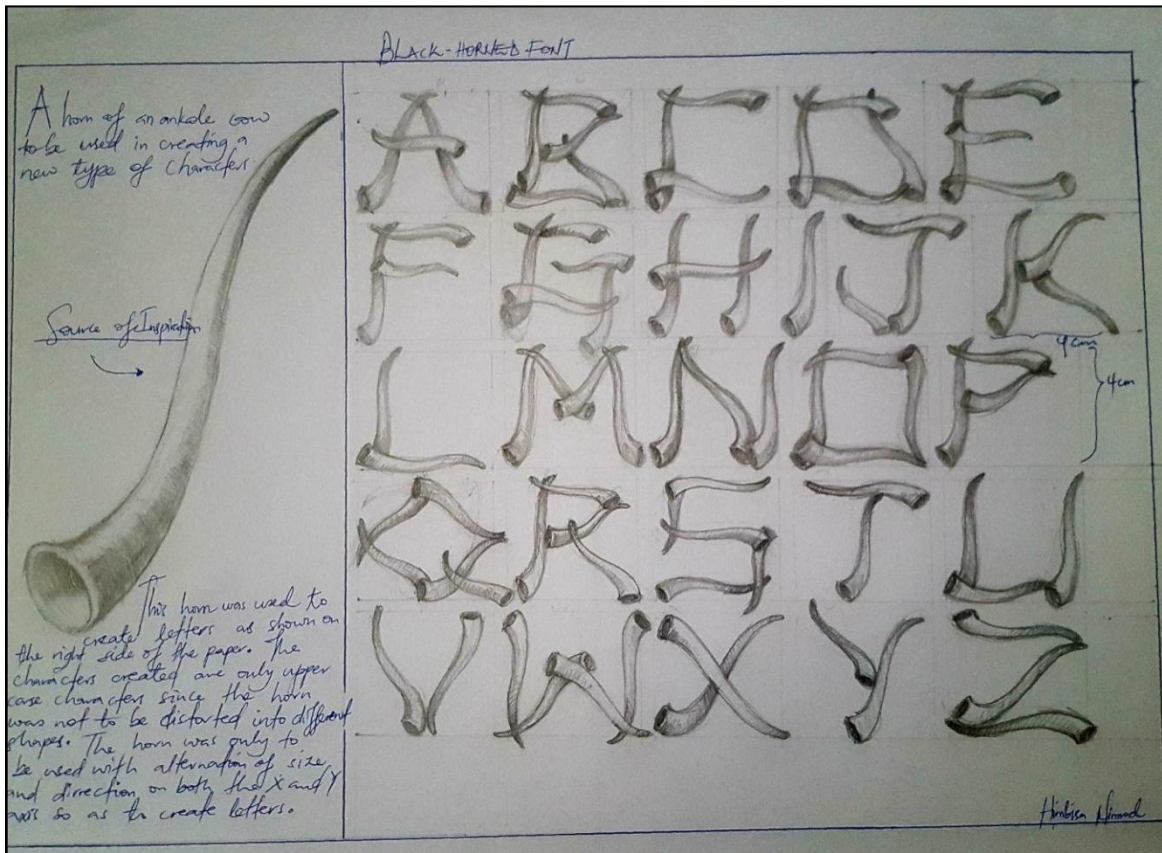 BLACK-HORNED FONT
A horn of an ankole cow
to be used in creating a
new type of characters
Source of Inspiration
This horn was used to
create letters as shown on
the right side of the paper. The
characters created are only upper
case characters since the horn
was not to be distorted into different
shapes. The horn was only to
be used with alternation of size
and direction on both the X and Y
axis so as to create letters.
A B C D E
F G H I J K
4cm
4cm
L M N O P
Q R S T U
V W X Y Z